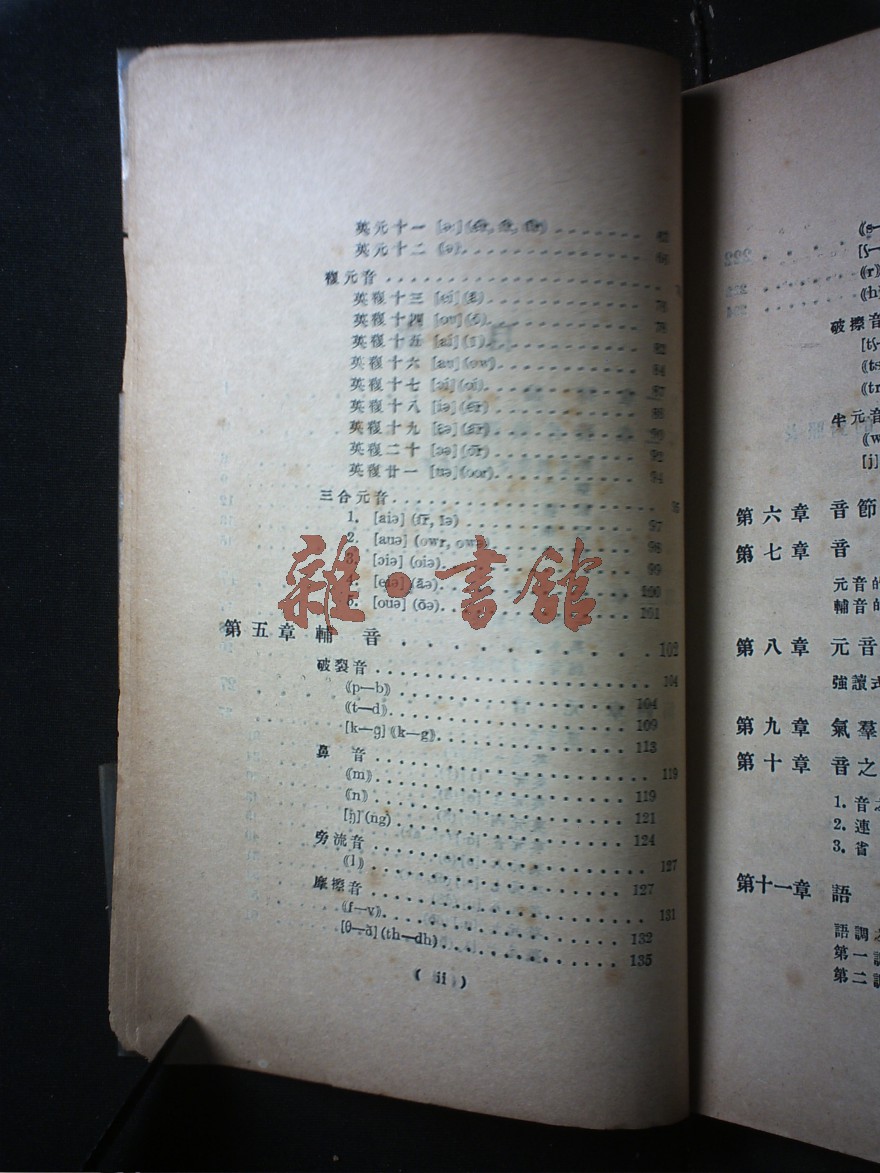 英元十一 [ə:]
英元十二 (ə)
複元音
英複十三 [ei] (ā)
英複十四 [ou] (ō)
英複十五 [ai] (ī) 82
英複十六 [au] (ow) 84
英複十七 [ɔi] (oi) 87
英複十八 [iə] (ēr) 88
英複十九 [ɛə] 90
英複二十 [ɔə] (ōr) 92
英複廿一 [uə] (oor) 94
三合元音 95
1. [aiə] (īr, īə) 97
2. [auə] (owr, owə) 98
3. [ɔiə] (oiə) 99
4. [eiə] (āə) 100
5. [ouə] (ōə) 101
第五章 輔 音 102
破裂音 104
⟪p—b⟫ 104
⟪t—d⟫ 109
[k—g] ⟪k—g⟫ 113
鼻 音 119
⟪m⟫ 119
⟪n⟫ 121
[ŋ] (ng) 124
旁流音 127
⟪l⟫ 127
摩擦音 131
⟪f—v⟫ 132
[θ—ð] (th—dh) 135
( ii )
雜·書館
⟪s—
[ʃ—
⟪r⟫
⟪h
破擦音
[tʃ—
⟪ts
⟪tr
半元音
⟪w
[j]
第六章 音節
第七章 音
元音的
輔音的
第八章 元音
強讀式
第九章 氣羣
第十章 音之
1. 音
2. 連
3. 省
第十一章 語
語調
第一
第二